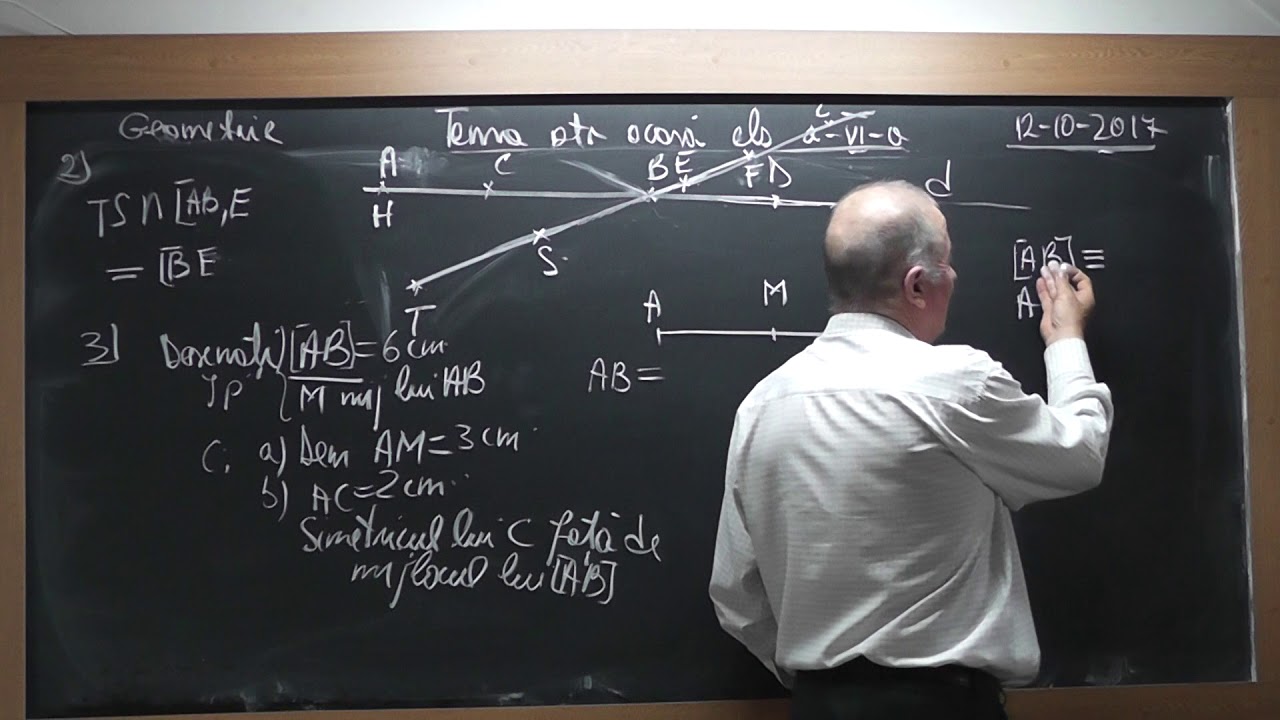 Geometrie
Tema ptr acasă cls a-VI-a
12-10-2017
2)
A C B E F D L d
H
S
T
TS ∩ [AB,E
= [BE
3) Desenati [AB] = 6 cm
Ip M mij lui AB
C. a) Dem AM = 3 cm
b) AC = 2 cm
Simetricul lui C fată de
mijlocul lui [AB]
A M
AB =
[AB] ≡
A